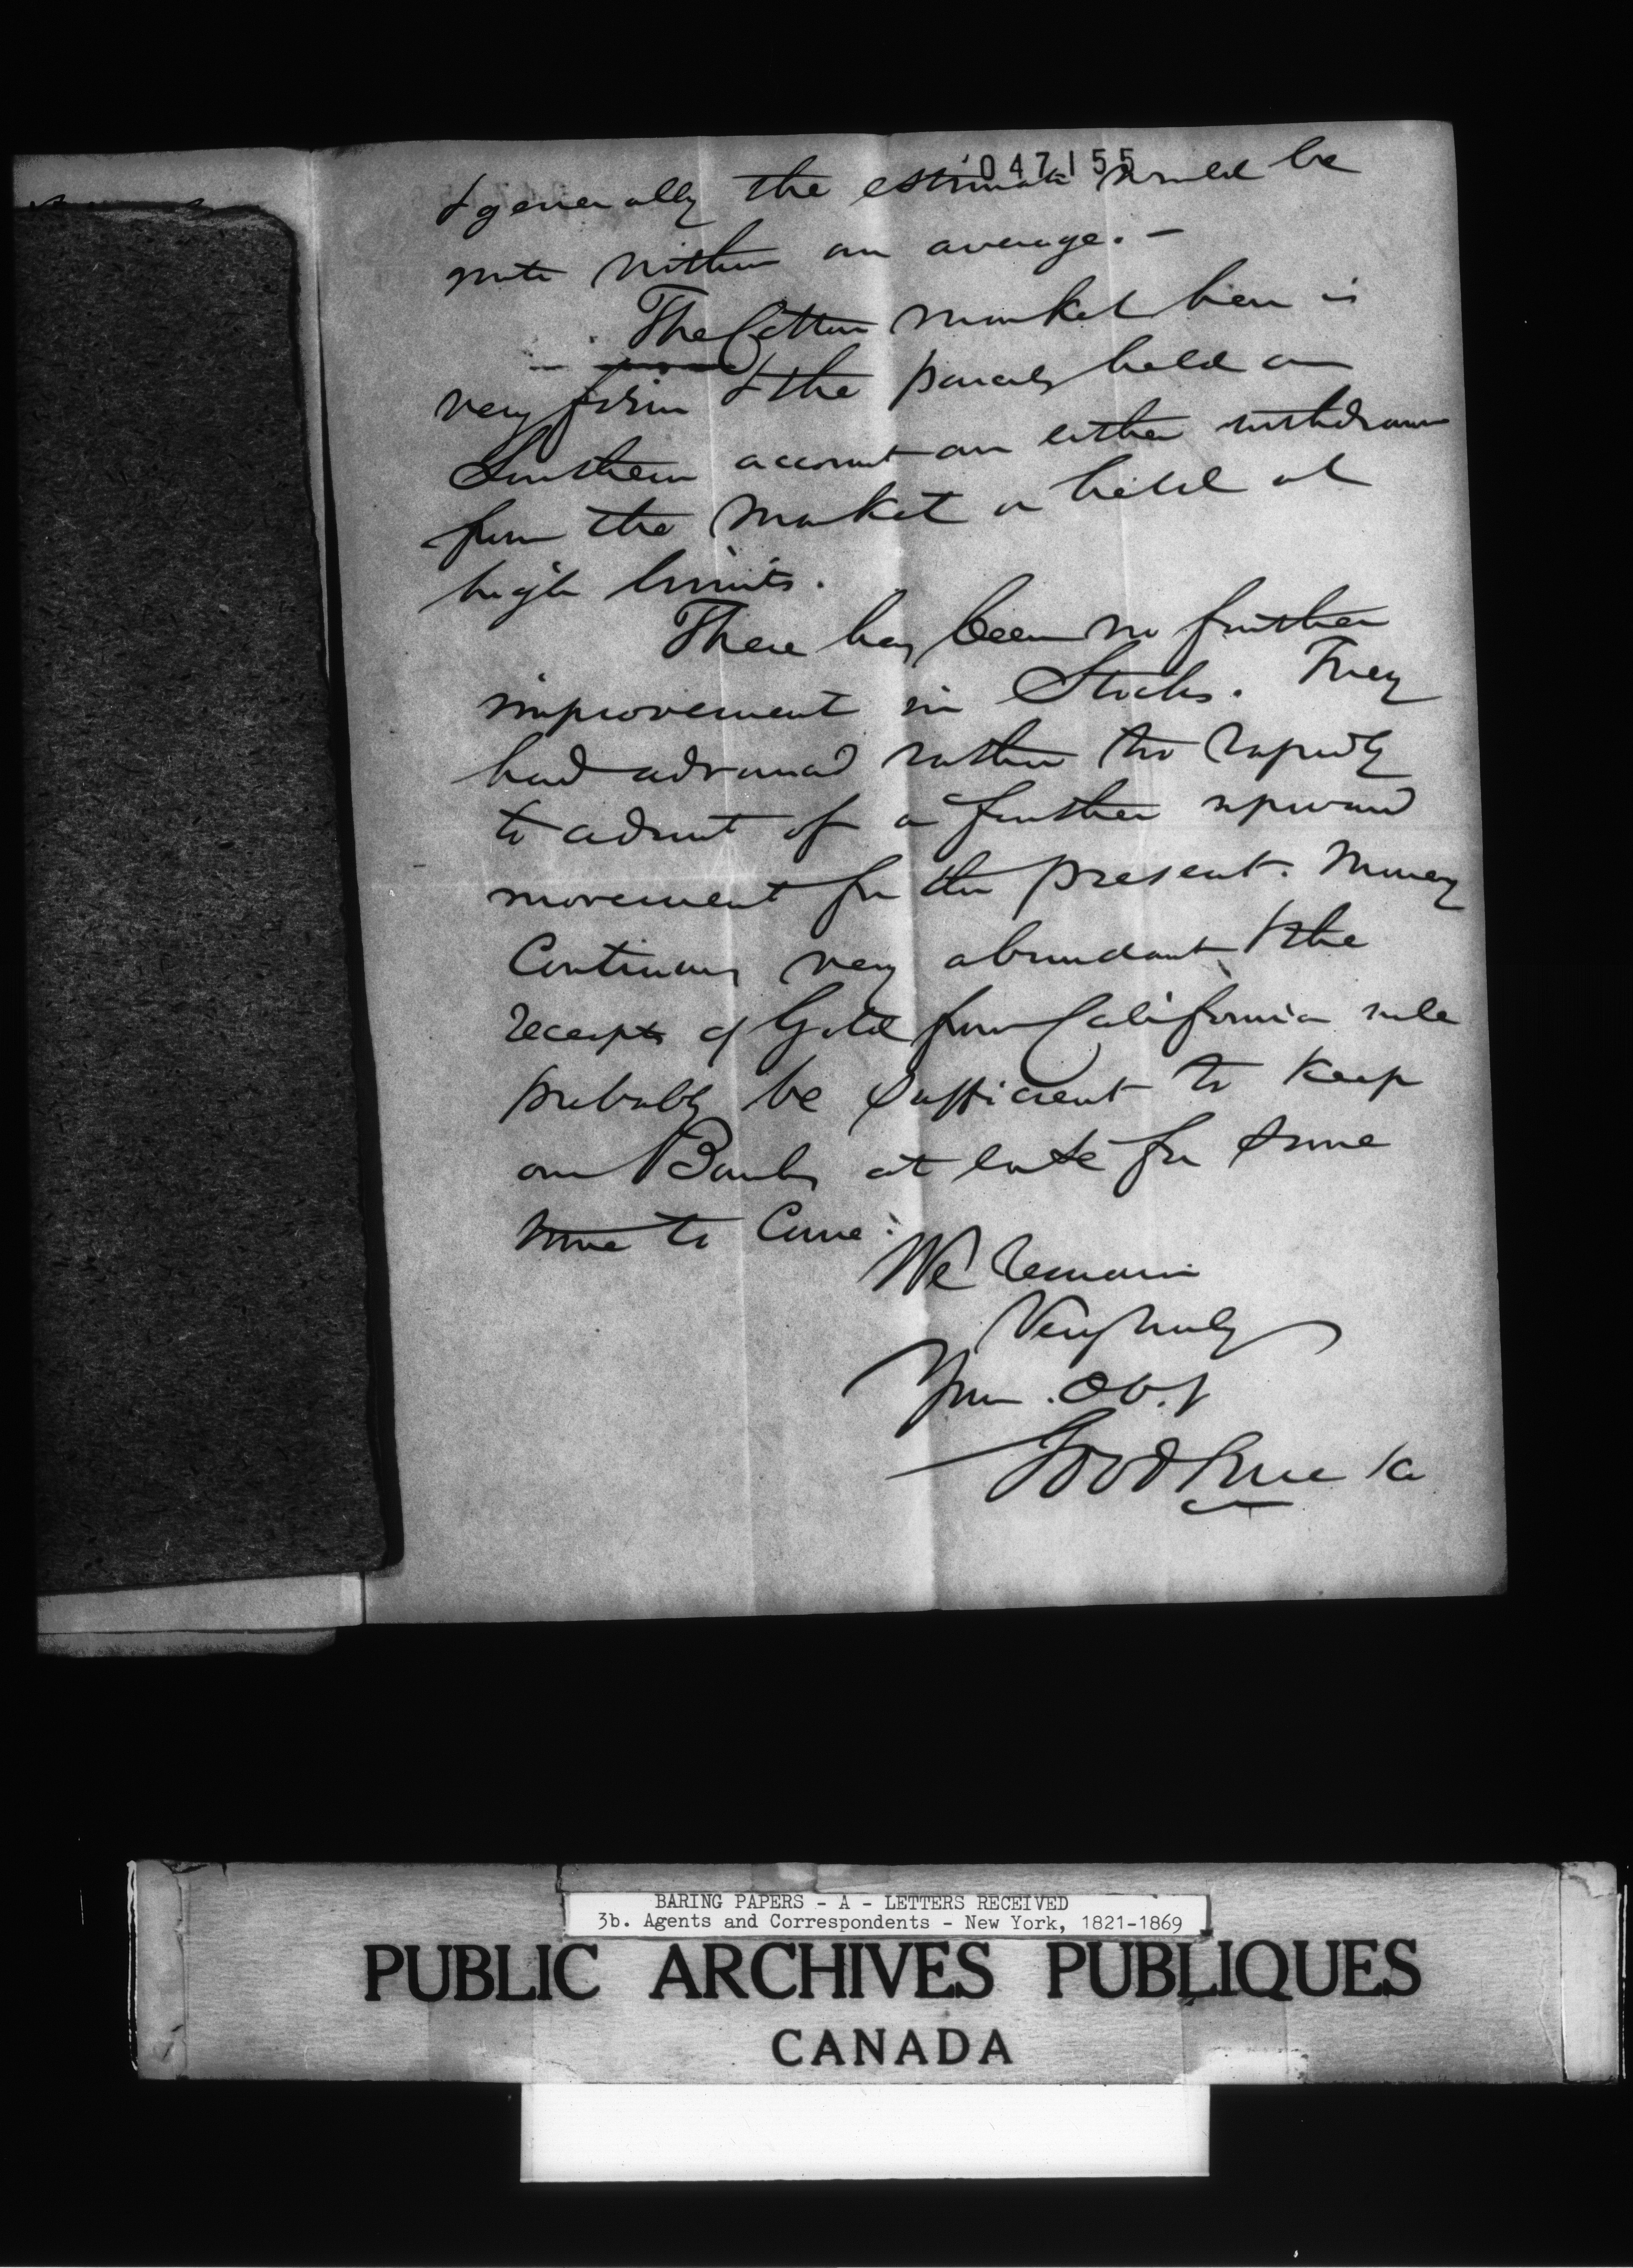 047155
& generally the estimate would be
quite within an average. -
The Cotton market here is
very firm & the parcels held on
Southern account are either withdrawn
from the market or held at
high limits.
There has been no further
improvement in Stocks. They
had advanced rather too rapidly
to admit of a further upward
movement for the present. Money
Continues very abundant & the
receipts of Gold from California will
probably be sufficient to keep
our Banks at ease for some
time to Come.
We remain
Very truly
Your Obt
Goodhue & Co
BARING PAPERS - A - LETTERS RECEIVED
3b. Agents and Correspondents - New York, 1821-1869
PUBLIC ARCHIVES PUBLIQUES
CANADA